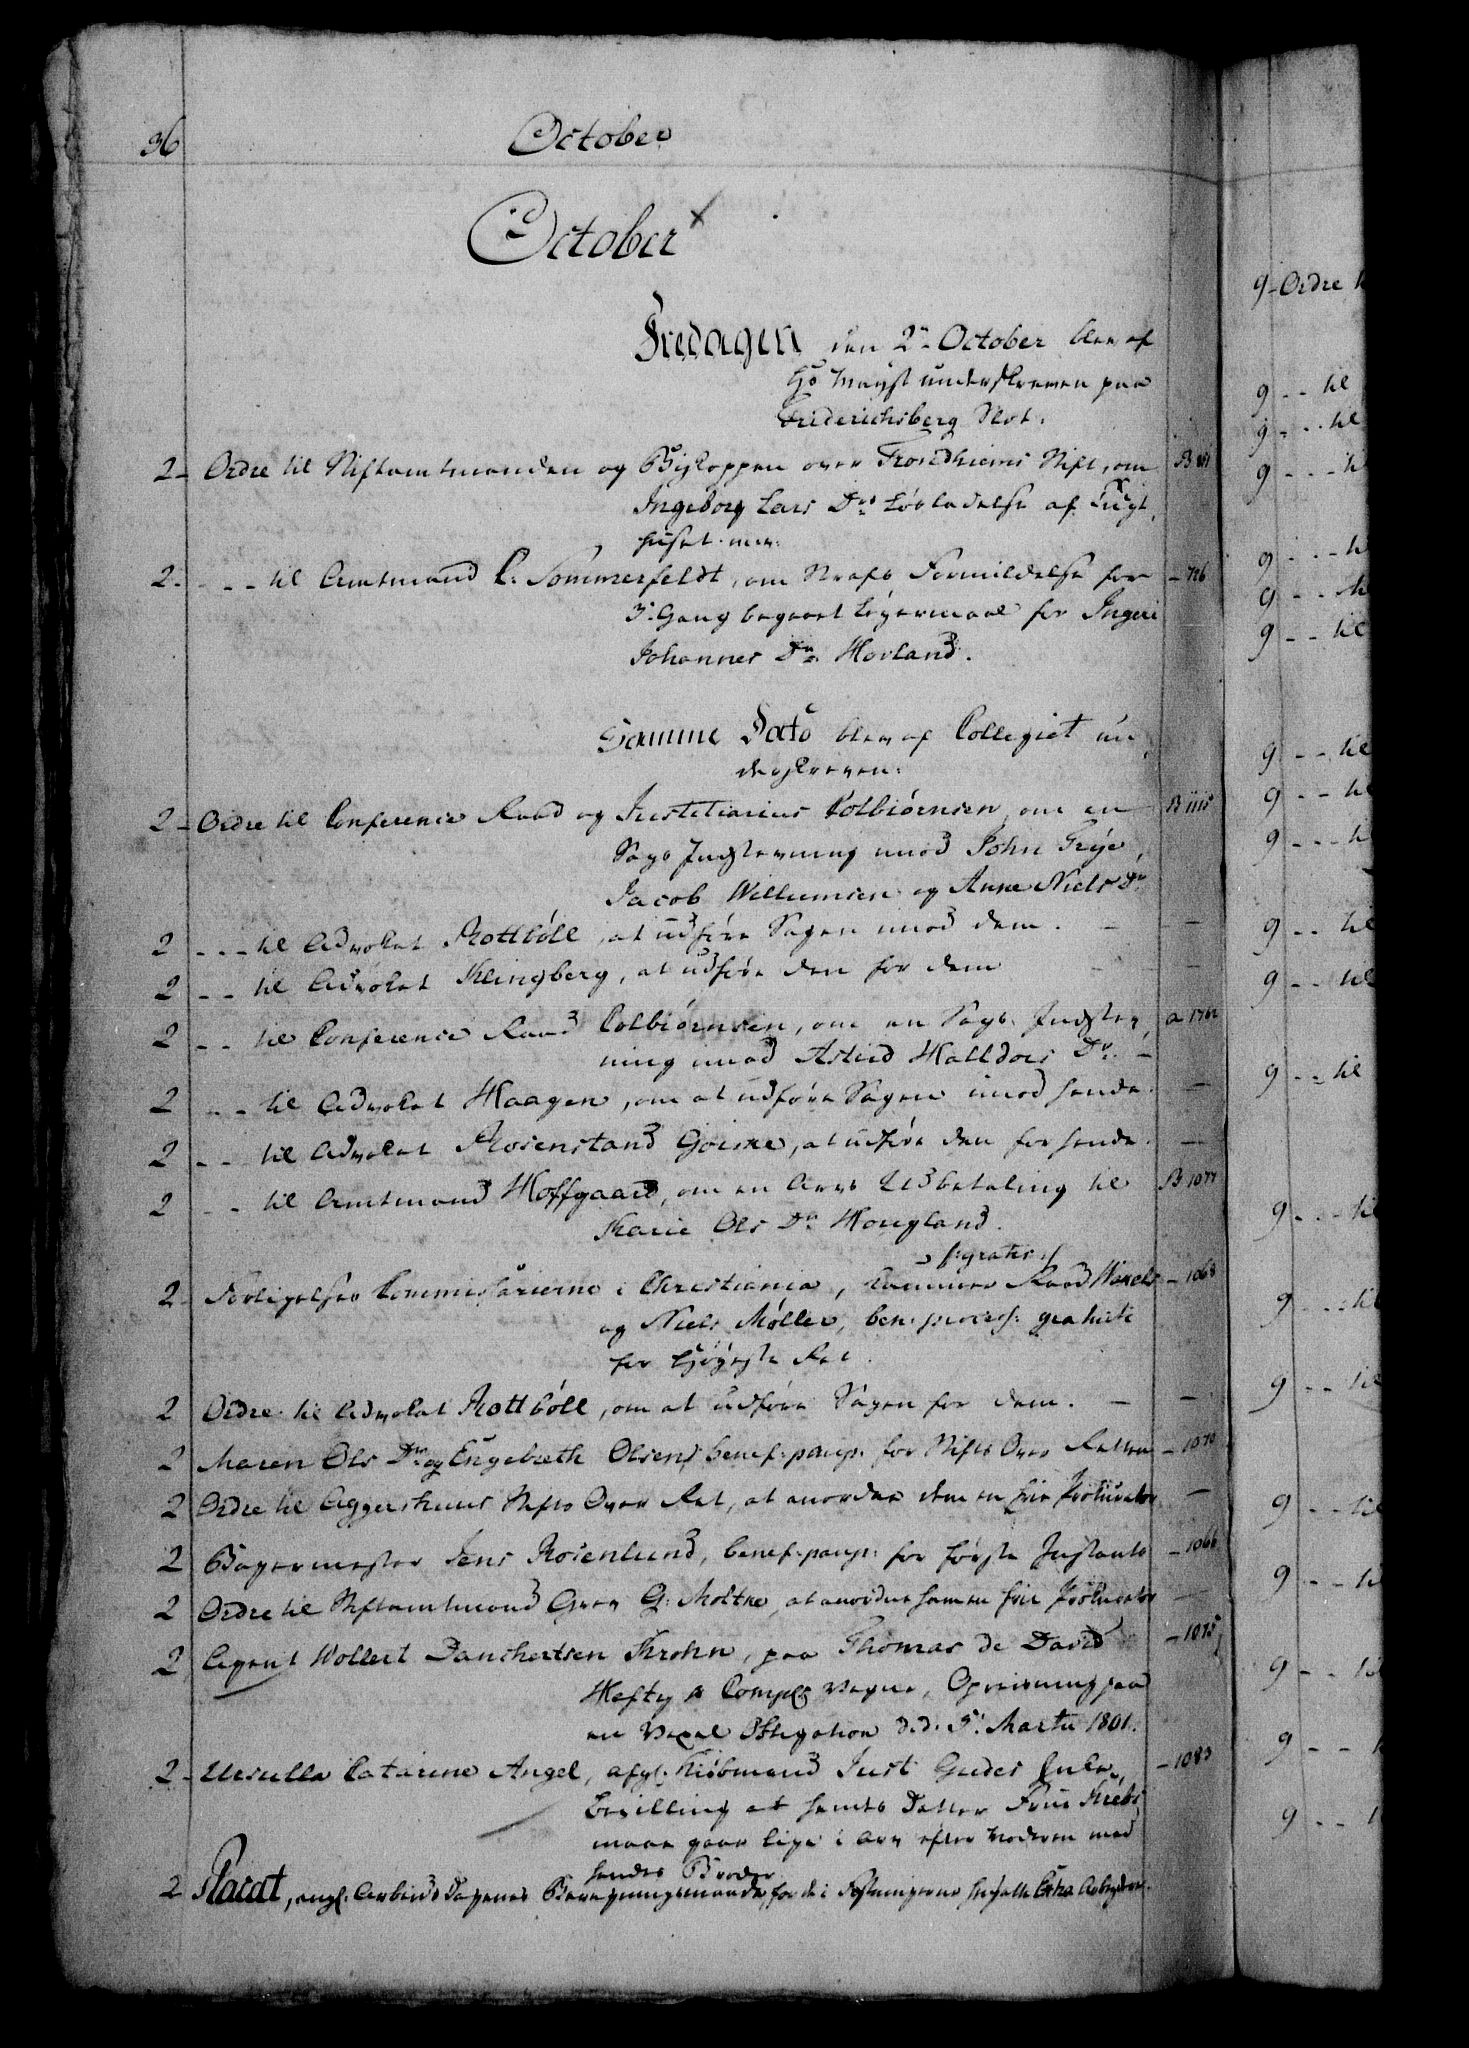 36
October
October
Fredagen den 2n October blev af
Hs Mayst underskreven paa
Friderichsberg Slot.
2 - Ordre til Stiftamtmanden og Biskoppen over Trondhiems Stift, om B
Ingeborg Lars Dr Løsladelse af Tugt
huset. m.v.
2 - - - til Amtmand C. Sommerfeldt, om Strafs Formildelse for - 726
3. Gang begaaet Leyermaal for Ingeri
Johannes Dr Hovland.
Samme Dato blev af Collegiet un
derskreven:
2 - Ordre til Conference Raad og Justitiarius Colbiørnsen, om en B 1115
Sags Indstevning imod John Grye,
Jacob Willumsen og Anne Niels Dr
2 - - - til Advokat Rottbøll, at udføre Sagen imod dem. - -
2 - - til Advokat Klingberg, at udføre den for dem - -
2 - - til Conference Raad Colbiørnsen, om en Sags Indstev a 1762
ning imod Astrid Halldors Dr. -
2 - - til Advokat Haagen, om at udføre Sagen imod hende. -
2 - - til Advokat Rosenstand Goiske, at udføre den for hende. -
2 - - til Amtmand Hoffgaard, om en Arvs Udbetaling til B 1077
Karie Ols Dr Hougland.
gratis
2 - Forligelses Commissairerne i Christiania, Kammer Raad Wexels - 1068
og Niels Møller, ben: process: gratuit:
for Høyeste Ret.
2 Ordre til Advokat Rottbøll, om at udføre Sagen for dem. - -
2 Maren Ols Dr og Engebreth Olsen, benef: paup: for Stifts Over Retten - 1070
2 Ordre til Aggershuus Stifts Over Ret, at anordne dem en frie Prokurator -
2 Bagermester Jens Rosenlund, benef: paup: for første Instants - 1066
2 Ordre til Stiftamtmand Grev G: Moltke, at anordne ham en frie Prokurator -
2 Agent Wollert Danchertsen Krohn, paa Thomas de David - 1075
Hefty & Compes Vegne, Opreisning paa
en Vexel Obligation d.d. 5. Martii 1801.
2 - Ursulla Catarine Angel, afgl: Kiøbmand Just Gudes Enke, - 1083
Bevilling at hendes Datter Frue Krebs
maae gaae lige i Arv efter Moderen med
hendes Brødre
2 Placat, angl: Arbeids Dagenes Beregningsmaade, for de i Fæstningerne hensatte Extra Arbeydere.
9 - Ordre
9 - - til
9 - - til
9 - - -
9 - - -
9 - - -
9 - - til
9 - - til
9 - - til
9 - - -
9 - - til
9 - - til
9 - - til
9 - - - til
9 - - - til
9 - - til
9 - - til
9 - - -
9 - - -
9 - -
9 - -